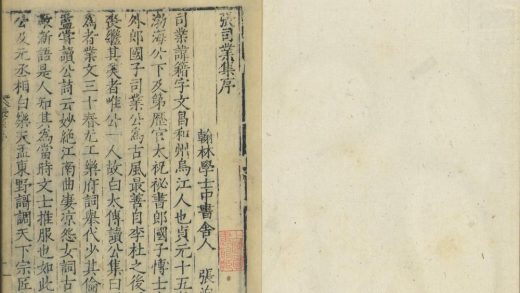 張司業集序
翰林學士中書舍人 張洎
司業諱籍字文昌和州烏江人也貞元十五
渤海公下及第歷官太祝秘書郎國子博士
外郎國子司業公為古風最善自李杜之後
喪繼其美者唯公一人故白太傅讀公集曰
為者業文三十春尤工樂府詞舉代少其倫
監嘗讀公詩云妙絕江南曲凄凉怨女詞古
敵新語是人知其為當時文士推服也如此
公及元丞相白樂天孟東野謌詞天下宗匠